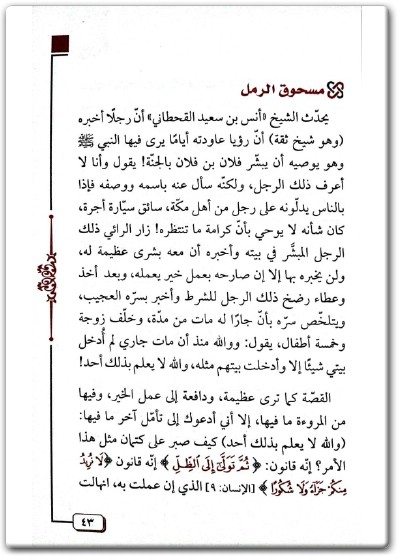 مسحوق الرمل
يحدّث الشيخ «أنس بن سعيد القحطاني» أنّ رجلًا أخبره
(وهو شيخ ثقة) أنّ رؤيا عاودته أيامًا يرى فيها النبي ﷺ
وهو يوصيه أن يبشّر فلان بن فلان بالجنّة! يقول وأنا لا
أعرف ذلك الرجل، ولكنّه سأل عنه باسمه ووصفه فإذا
بالناس يدلّونه على رجل من أهل مكّة، سائق سيّارة أجرة،
كان شأنه لا يوحي بأنّ كرامة ما تنتظره! زار الرائي ذلك
الرجل المبشَّر في بيته وأخبره أن معه بشرى عظيمة له،
ولن يخبره بها إلا إن صارحه بعمل خير يعمله، وبعد أخذ
وعطاء رضخ ذلك الرجل للشرط وأخبر بسرّه العجيب،
ويتلخّص سرّه بأنّ جارًا له مات من مدّة، وخلّف زوجة
وخمسة أطفال، يقول: ووالله منذ أن مات جاري لم أُدخل
بيتي شيئًا إلا وأدخلت بيتهم مثله، والله لا يعلم بذلك أحد!
القصّة كما ترى عظيمة، ودافعة إلى عمل الخير، وفيها
من المروءة ما فيها، إلا أني أدعوك إلى تأمّل آخر ما فيها:
(والله لا يعلم بذلك أحد) كيف صبر على كتمان مثل هذا
الأمر؟ إنّه قانون: ﴿ثُمَّ تَوَلَّىٰٓ إِلَى ٱلظِّلِّ﴾ إنّه قانون ﴿لَا نُرِيدُ
مِنكُمْ جَزَآءً وَلَا شُكُورًا﴾ [الإنسان: ٩] الذي إن عملت به، انهالت
٤٣